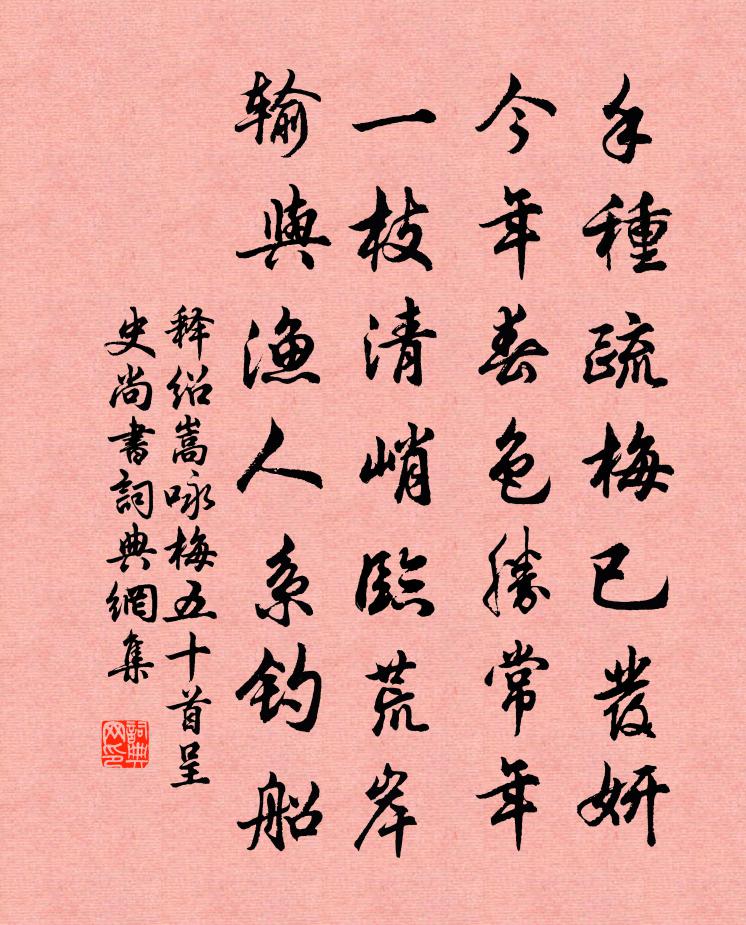 手種疏梅已發妍
今年春色勝常年
一枝清峭臨荒岸
輸與漁人系钓船
释绍嵩咏梅五十首呈
史尚書詞典網集
詞典网印